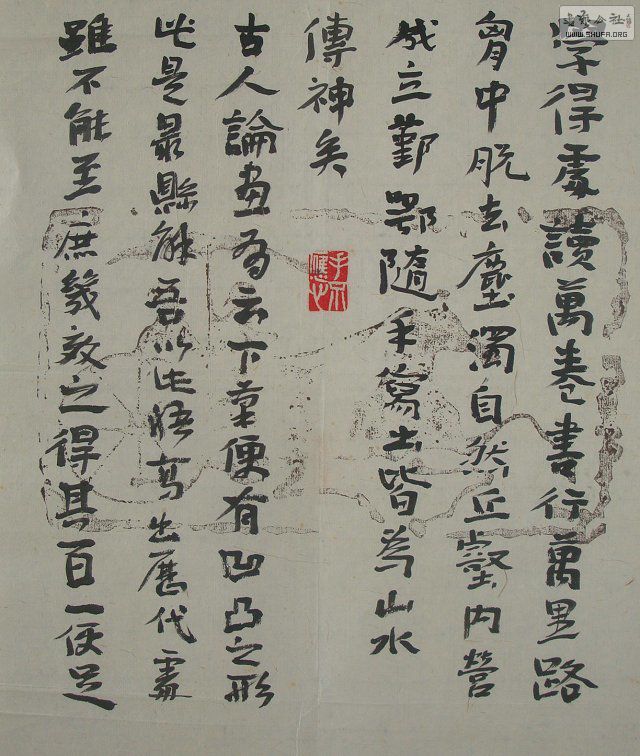 学得處讀萬卷書行萬里路
胷中脫去塵濁自然丘壑内營
成立鄞鄂隨手寫出皆為山水
傳神矣
古人論畫有云下筆便有凹凸之形
此是最縣解吾以此悟高出歷代處
雖不能至庶幾效之得其百一便足
书艺公社
WWW.SHUFA.ORG